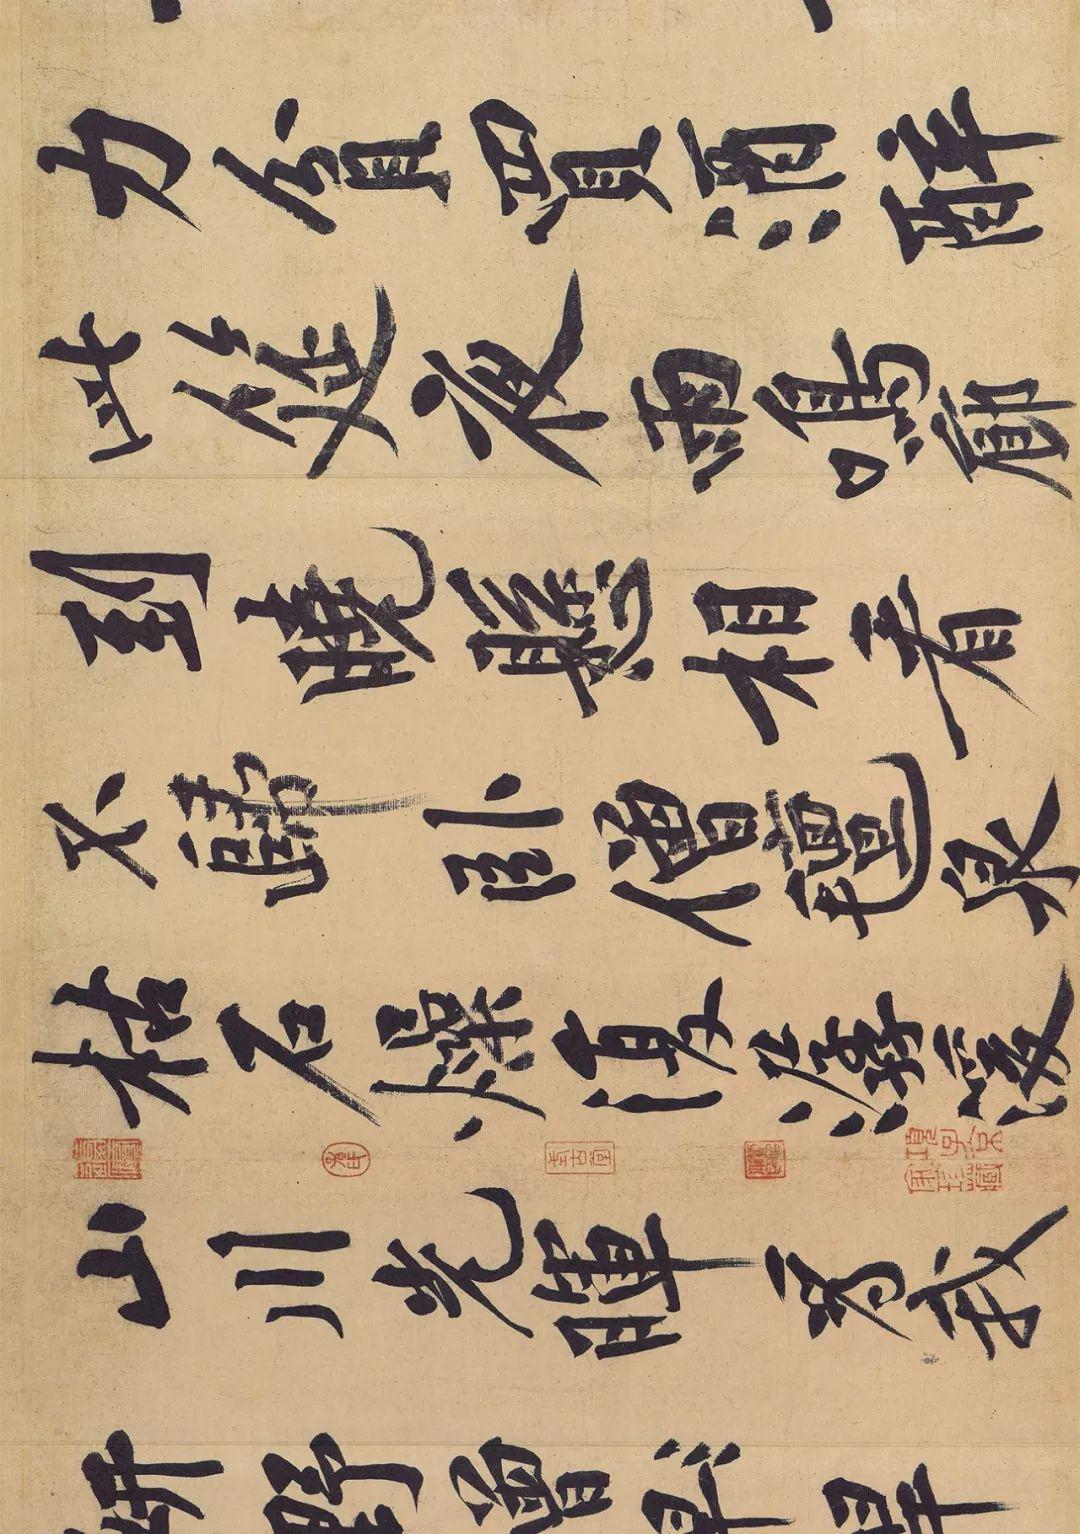 力貧買酒醉
此筵夜雨鳴廊
到曉懸相看
不歸臥僧氈泉
枯石燥復潺湲
山川光暉為我
妍野僧